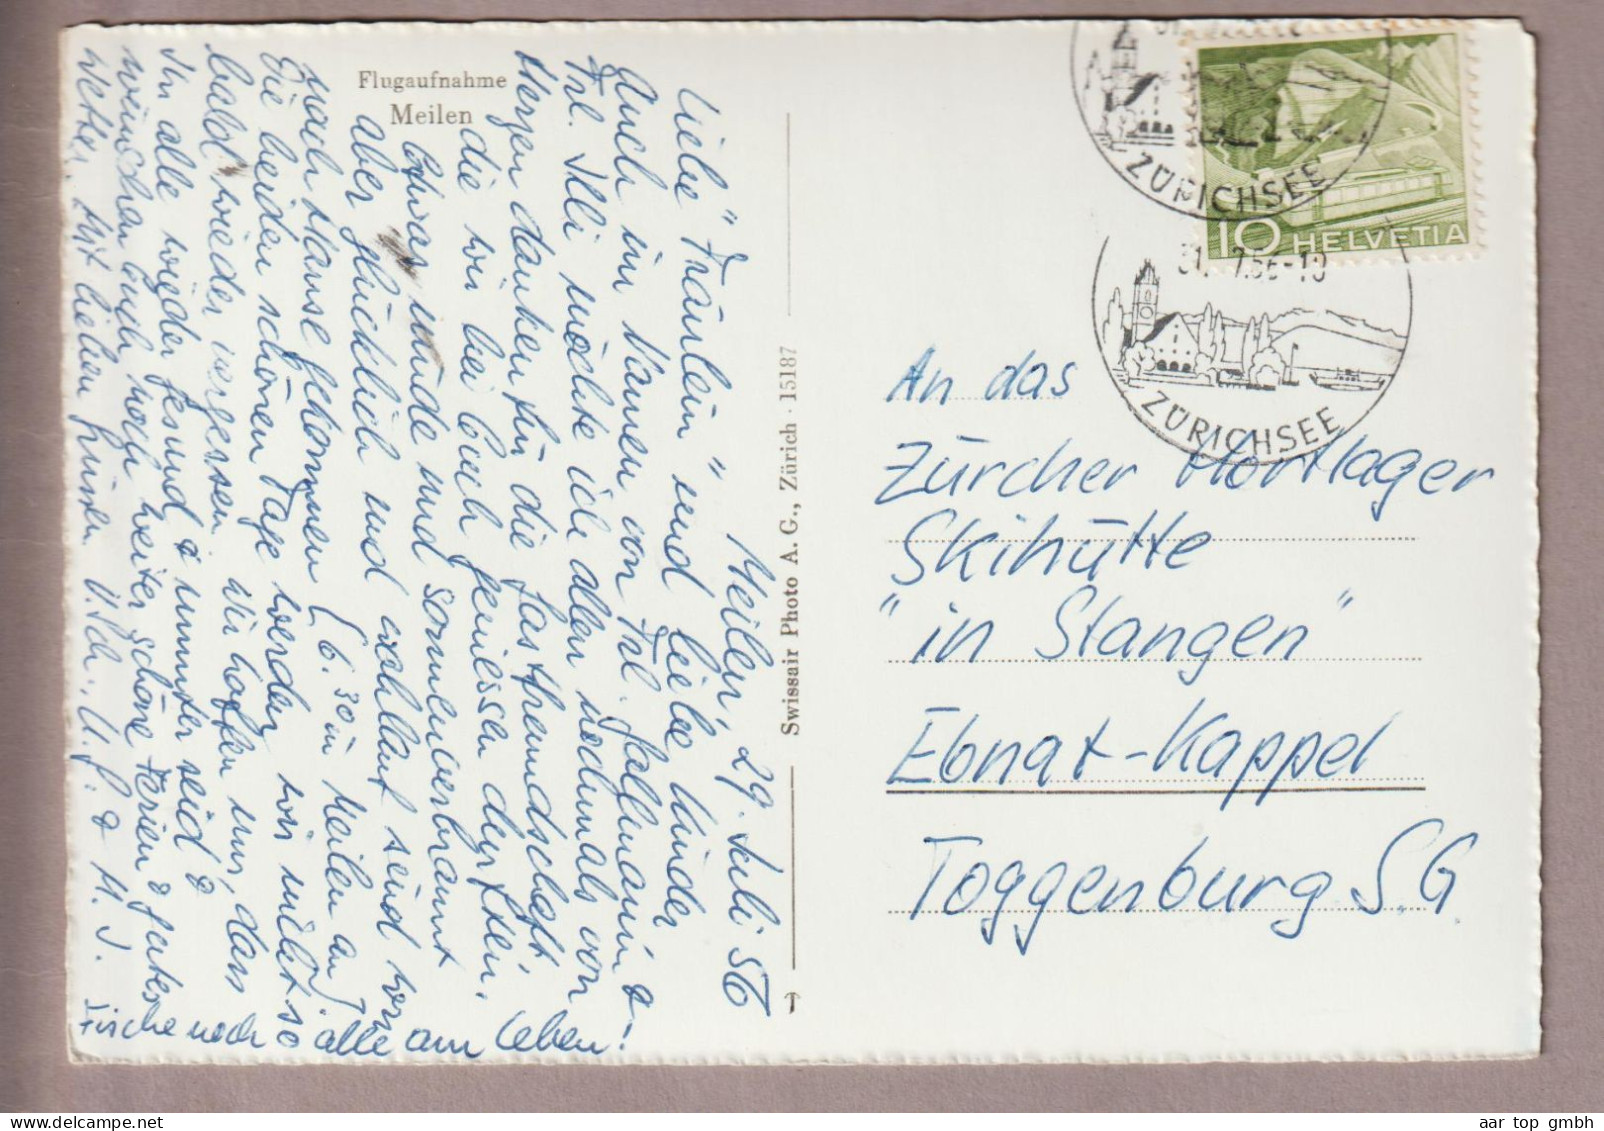 Flugaufnahme
Meilen
Meilen, 29. Juli 56
Liebe "Fräulein" und liebe Kinder
Auch im Namen von Frl. Fallmann &
Frl. Illi möchte ich allen nochmals von
Herzen danken für die Gastfreundschaft
die wir bei Euch geniessen durften.
Etwas müde und sonnenverbrannt
aber glücklich und wohlauf sind wir
nach Hause gekommen (6.30 in Meilen an)
Die beiden schönen Tage werden wir nicht so
bald wieder vergessen. Wir hoffen nur, dass
Ihr alle wieder gesund & munter seid &
wünschen Euch noch weiter schöne Ferien & gutes
Wetter. Mit lieben Grüssen
U. F. & M. I.
Fische noch alle am Leben!
Swissair Photo A. G., Zürich · 15187
ZÜRICHSEE
10 HELVETIA
31. 7.56-10
ZÜRICHSEE
An das
Zürcher Hortlager
Skihütte
"in Stangen"
Ebnat-Kappel
Toggenburg S.G.
aar top gmbh